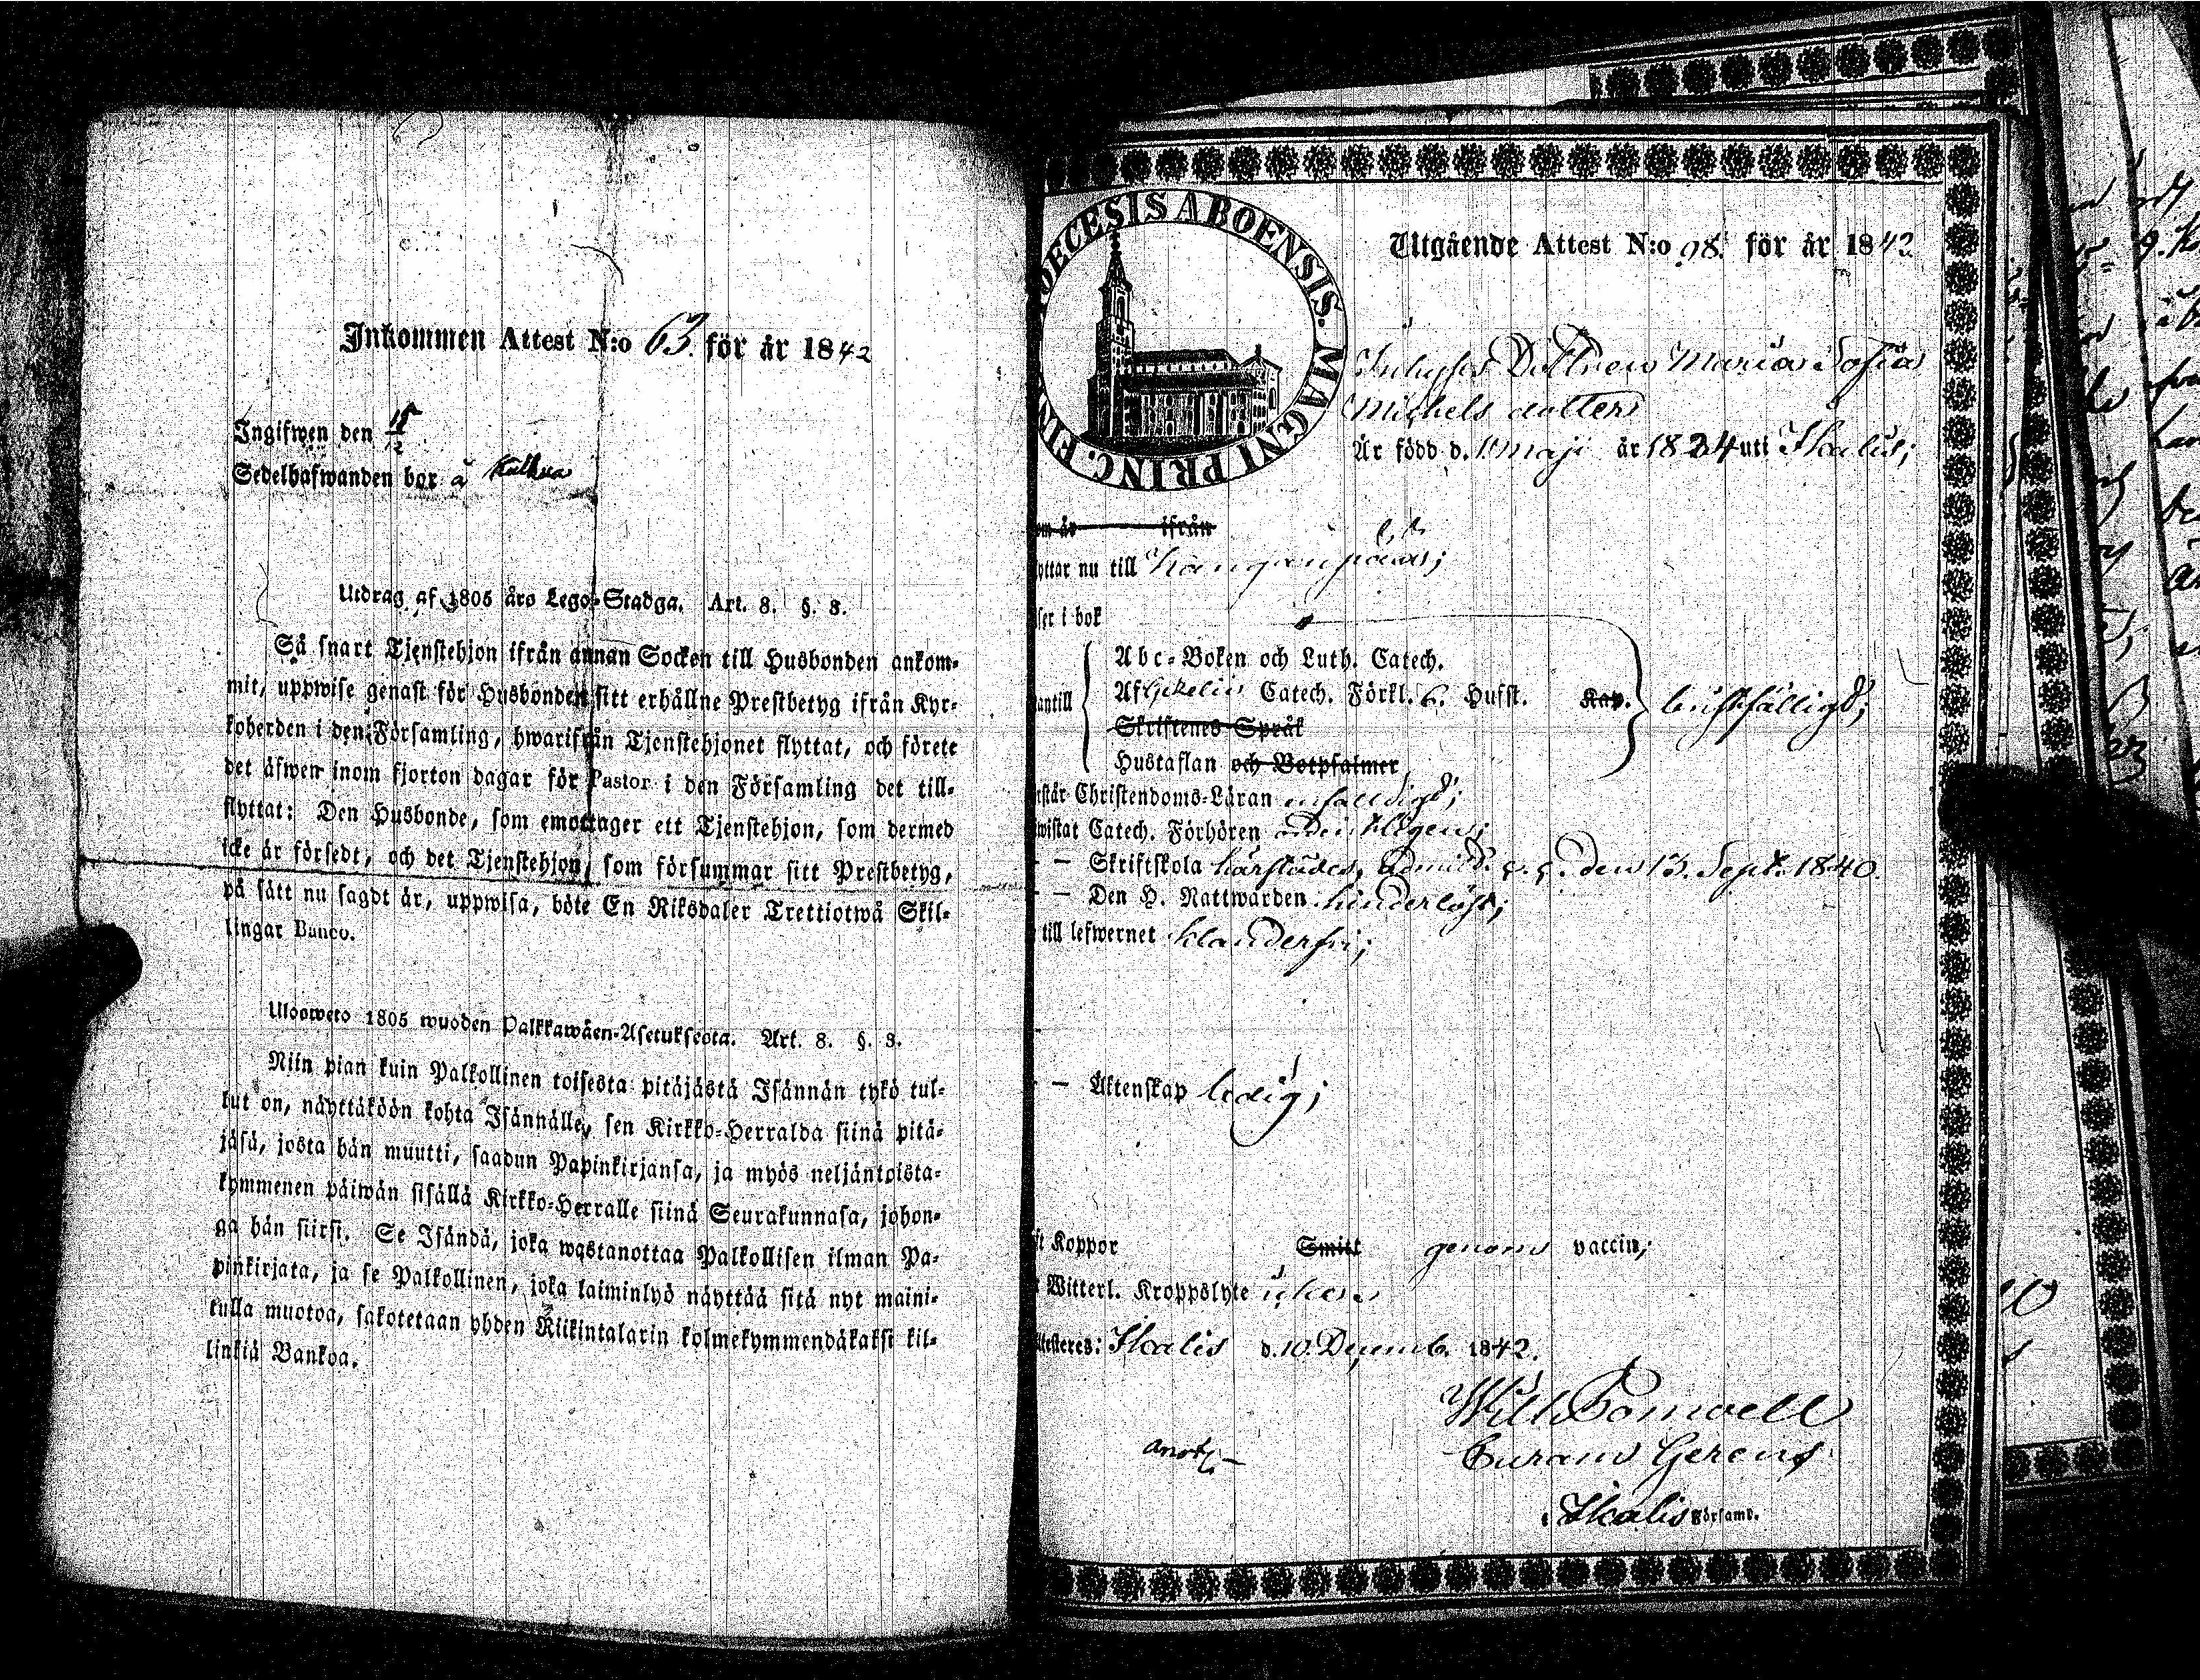 Inkommen Attest N:o 63. för år 1842
Ingifwen den 18/12
Sedelhafwanden bor å
Utdrag af 1805 års Lego-Stadga. Art. 8. §. 8.
Så snart Tjenstehjon ifrån annan Socken till Husbonden ankom-
mit, uppwise genast för Husbonden sitt erhållne Prestbetyg ifrån Kyr-
koherden i den Församling, hwarifrån Tjenstehjonet flyttat, och förete
det äfwen inom fjorton dagar för Pastor i den Församling det till-
flyttat: Den Husbonde, som emottager ett Tjenstehjon, som dermed
icke är försedt, och det Tjenstehjon, som försummar sitt Prestbetyg,
på sätt nu sagdt är, uppwisa, böte En Riksdaler Trettiotwå Skil-
lingar Banco.
Ulosweto 1805 wuoden Palkkawäen-Asetuksesta. Art. 8. §. 8.
Niin pian kuin Palkollinen toisesta pitäjästä Isännän tykö tul-
lut on, näyttäköön kohta Isännälle, sen Kirkko-Herralda siinä pitä-
jäsä, josta hän muutti, saadun Papinkirjansa, ja myös neljäntoista-
kymmenen päiwän sisällä Kirkko-Herralle siinä Seurakunnasa, johon-
ga hän siirsi. Se Isändä, joka wastanottaa Palkollisen ilman Pa-
pinkirjata, ja se Palkollinen, joka laiminlyö näyttää sitä nyt maini-
tulla muotoa, sakotetaan yhden Riikintalarin kolmekymmendäkaksi kil-
linkiä Bankoa.
DIOECESIS ABOENSIS. MAGNI PRINC. FIN
Utgående Attest N:o 98. för år 1842
Inhyses Dottren Maria Sofia
Michels dotter
Är född d. 1 maji år 1824 uti Ikalis;
om är ifrån
yttar nu till Kangasnpää;
ser i bok
Abc-Boken och Luth. Catech.
antill Af Gezelii Catech. Förkl. 6. Hufst. Kap. bristfälligt;
Skriftenes Språk
Hustaflan och Botpsalmer
rstår Christendoms-Läran enfaldigt;
wistat Catech. Förhören ordentligen;
— Skriftskola härstädes, admitt. den 13. Sept. 1840.
— Den H. Nattwarden hinderlöst;
till lefwernet klanderfri;
— Äktenskap ledig;
ft Koppor Smitt genom vaccin;
Witterl. Kroppslyte
ttesteres: Ikalis d. 10 Decemb. 1842.
Wilh. Pomoell
Curam Gerens
annot.
Ikalis Församl.